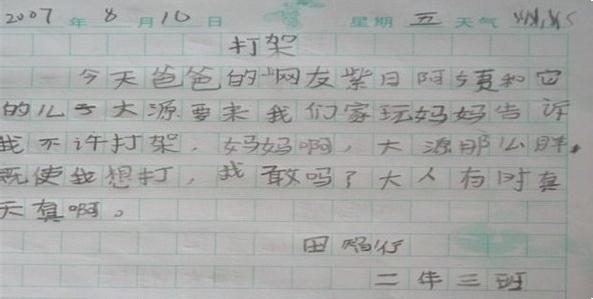 2007年8月10日 星期五天气
打架
今天爸爸的网友紫日阿姨和它
的儿子大源要来我们家玩妈妈告诉
我不许打架。妈妈啊，大源那么胖，
既使我想打，我敢吗？大人有时真
天真啊。
田
二年三班